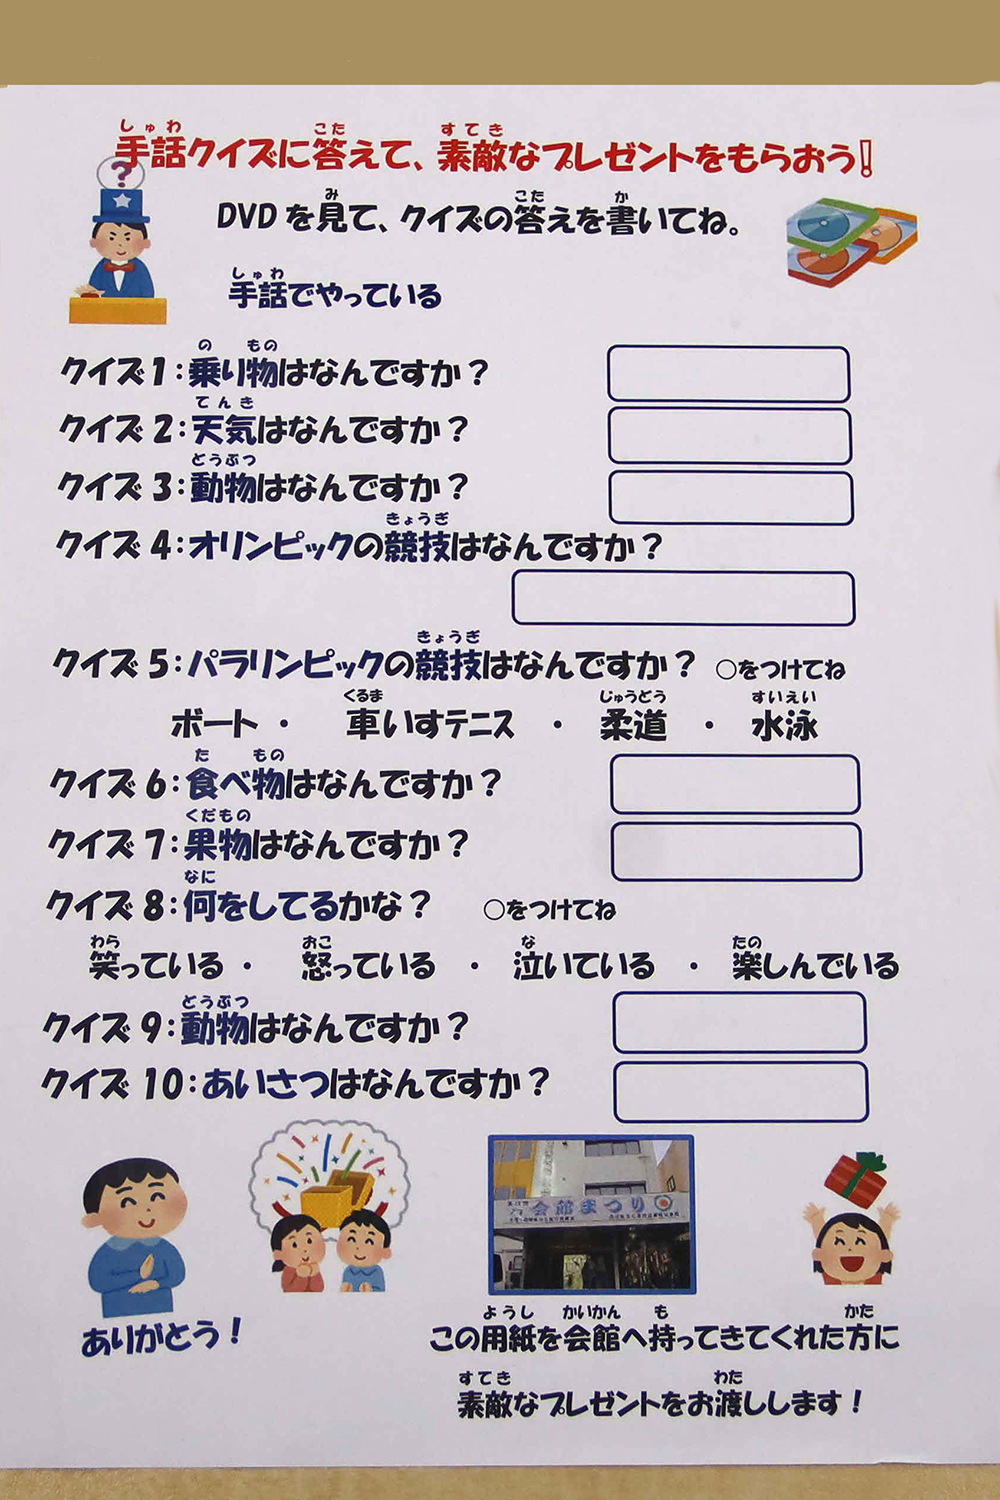 手話クイズに答えて、素敵なプレゼントをもらおう!
DVDを見て、クイズの答えを書いてね。
手話でやっている
クイズ1:乗り物はなんですか?
クイズ2:天気はなんですか?
クイズ3:動物はなんですか?
クイズ4:オリンピックの競技はなんですか?
クイズ5:パラリンピックの競技はなんですか? ○をつけてね
ボート ・ 車いすテニス ・ 柔道 ・ 水泳
クイズ6:食べ物はなんですか?
クイズ7:果物はなんですか?
クイズ8:何をしてるかな? ○をつけてね
笑っている ・ 怒っている ・ 泣いている ・ 楽しんでいる
クイズ9:動物はなんですか?
クイズ10:あいさつはなんですか?
会館まつり
ありがとう!
この用紙を会館へ持ってきてくれた方に
素敵なプレゼントをお渡しします!